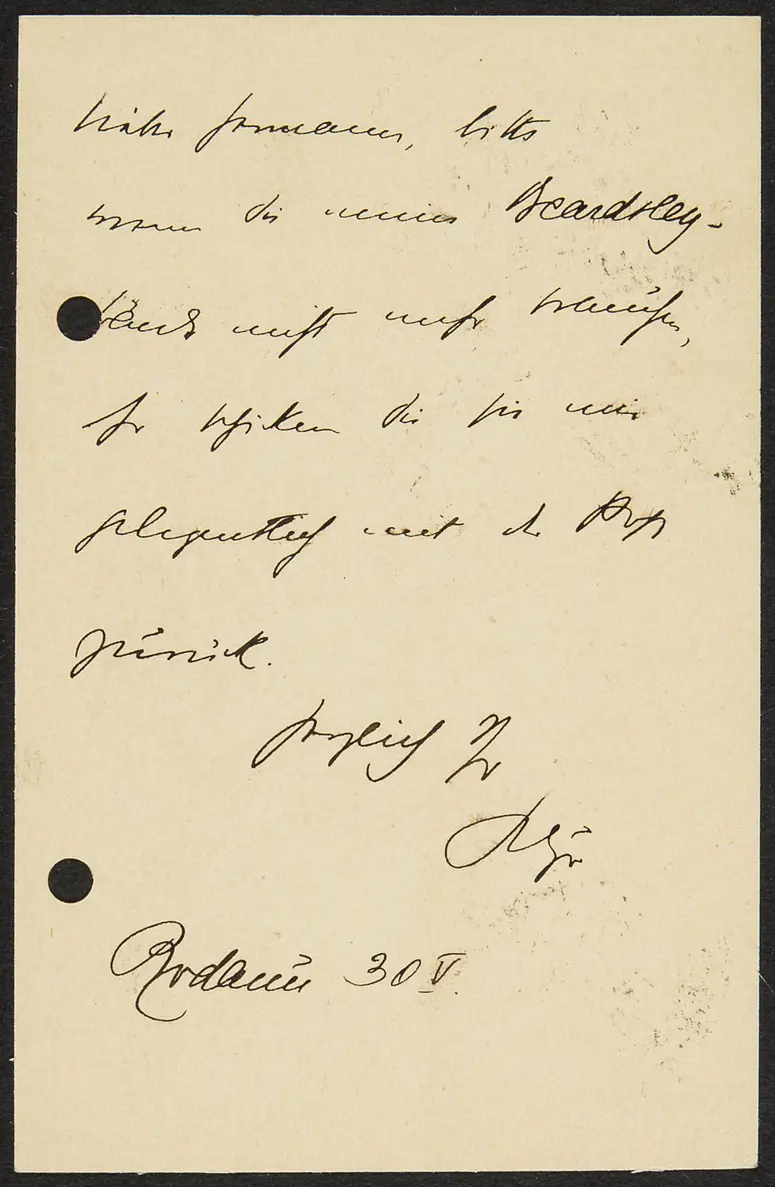 lieber Hermann, bitte
wenn Sie meine Beardsley-
bände nicht mehr brauchen,
so schicken Sie sie mir
gelegentlich mit der Post
zurück.
herzlich Ihr
Rodaun 30 V.